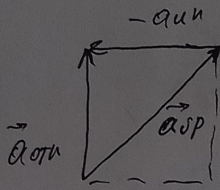 -aин
→aбр
→aотн